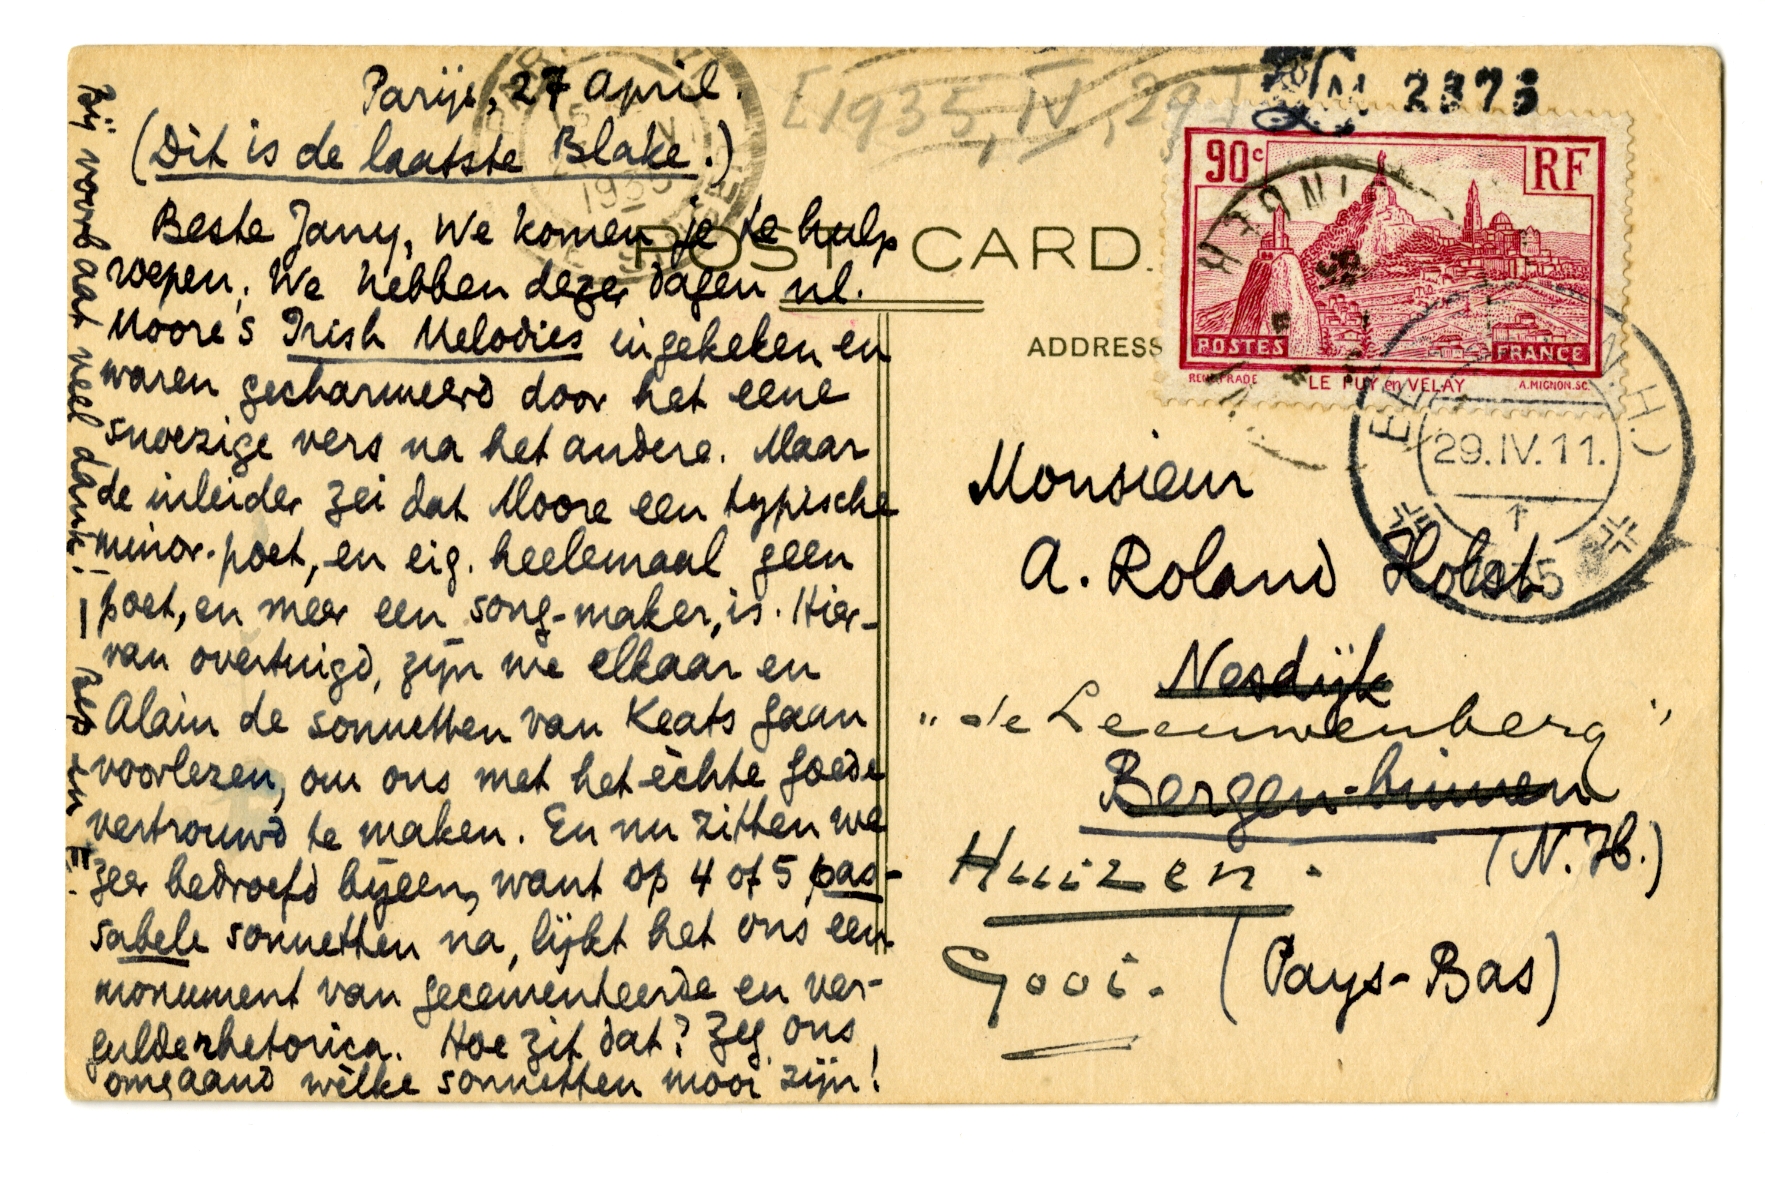 Parijs, 27 April.
(Dit is de laatste Blake.)
Beste Jany, We komen je te hulp
roepen. We hebben dezer dagen nl.
Moore's Irish Melodies ingekeken en
waren gecharmeerd door het eene
snoezige vers na het andere. Maar
de inleider zei dat Moore een typische
minor-poet, en eig. heelemaal geen
poet, en meer een song-maker, is. Hier-
van overtuigd, zijn we elkaar en
Alain de sonnetten van Keats gaan
voorlezen, om ons met het èchte goede
vertrouwd te maken. En nu zitten we
zeer bedroefd bijeen, want op 4 of 5 pas-
sabele sonnetten na, lijkt het ons een
monument van gecementeerde en ver-
gulde rhetorica. Hoe zit dat? Zeg ons
omgaand wèlke sonnetten mooi zijn!
Bij voorbaat veel dank! — Bep en E.
[1935, IV, 29]
2373
1935
POST CARD.
ADDRESS
90c RF
POSTES FRANCE
LE PUY en VELAY
A. MIGNON. SC.
29.IV.11.
1935
N.H.)
Monsieur
A. Roland Holst
Nesdijk
"de Leeuwenberg"
Bergen-binnen
(N.H.)
Huizen.
Gooi.
(Pays-Bas)